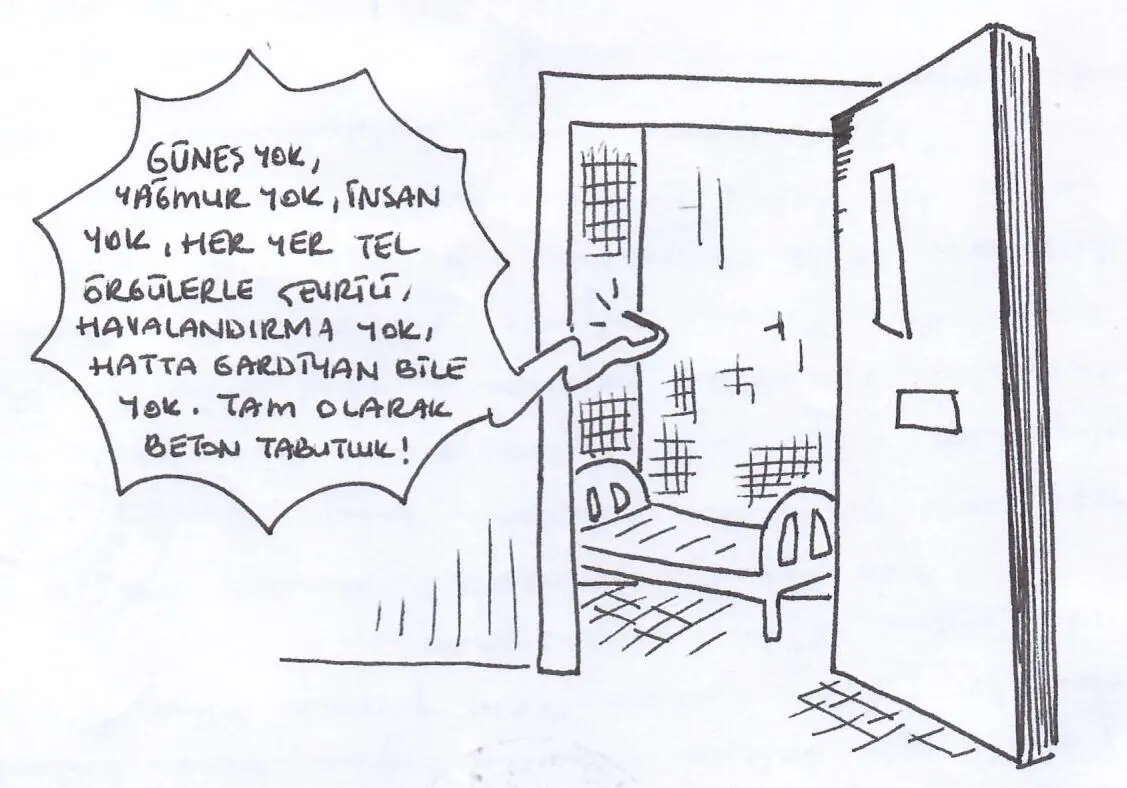 GÜNEŞ YOK,
YAĞMUR YOK, İNSAN
YOK, HER YER TEL
ÖRGÜLERLE ÇEVRİLİ,
HAVALANDIRMA YOK,
HATTA GARDİYAN BİLE
YOK. TAM OLARAK
BETON TABUTLUK!